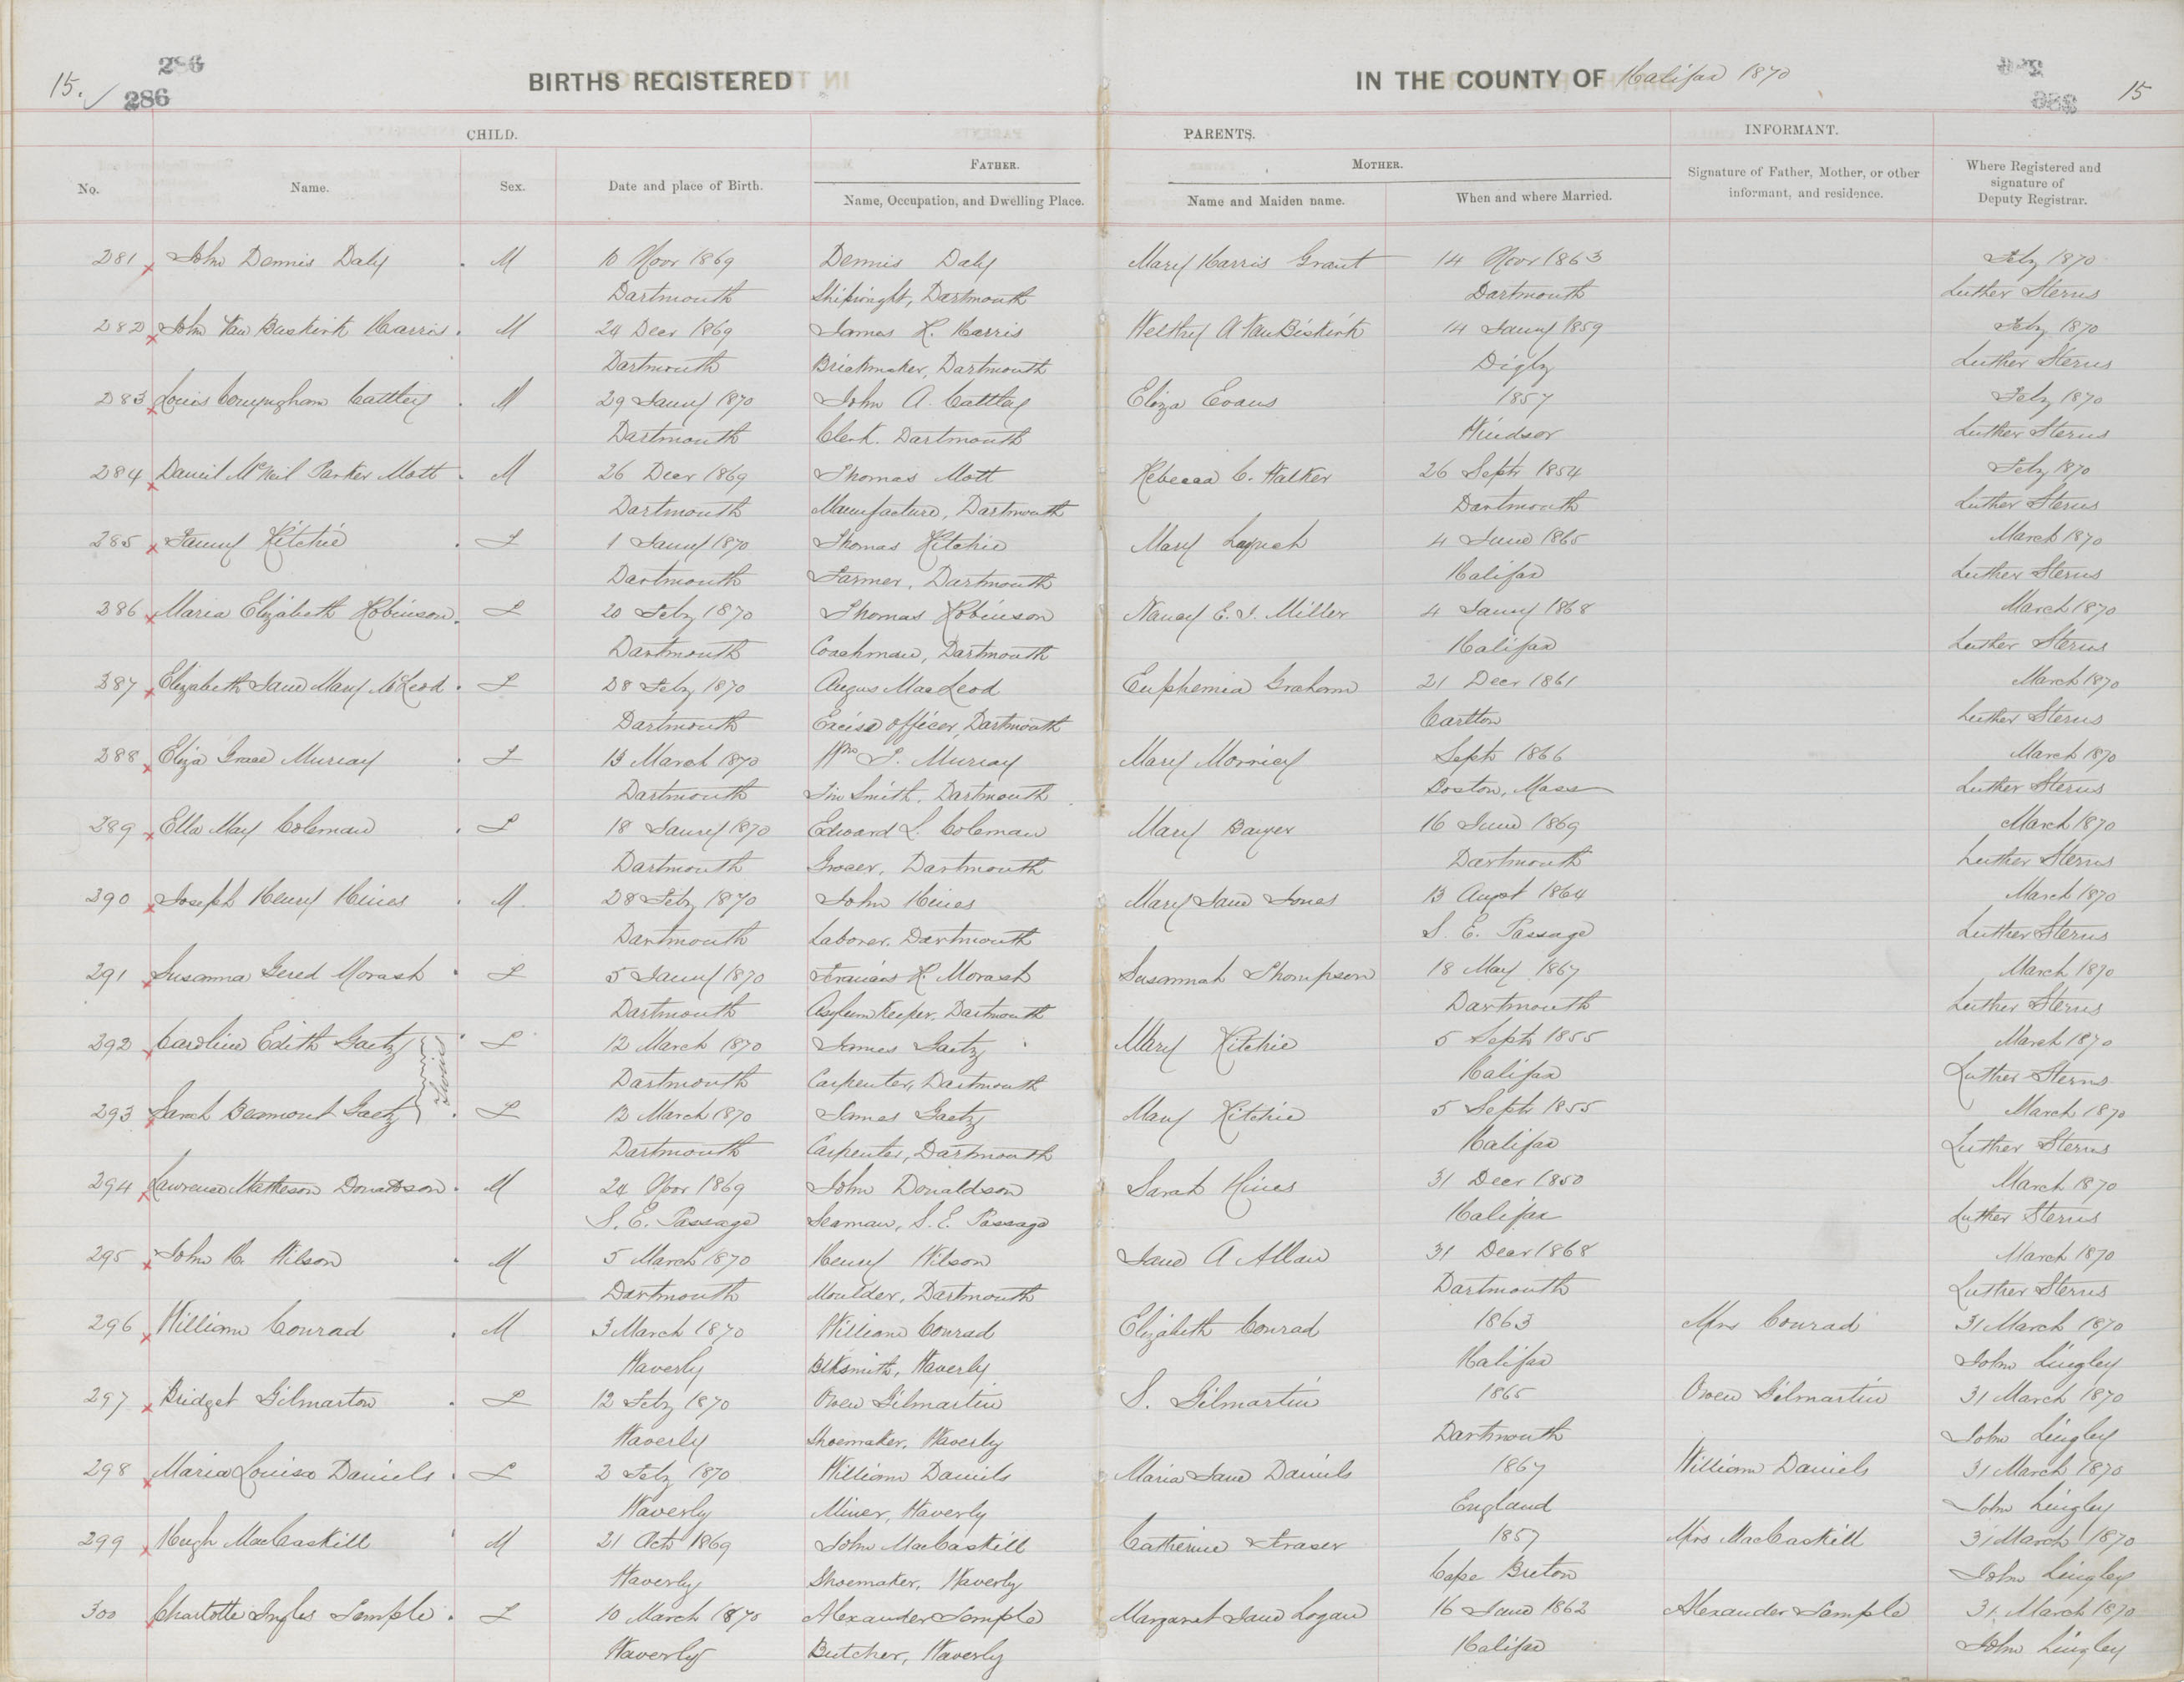 15. 286 BIRTHS REGISTERED IN THE COUNTY OF Halifax 1870 15
286
CHILD. PARENTS. INFORMANT.
No. Name. Sex. Date and place of Birth. FATHER. Name, Occupation, and Dwelling Place. MOTHER. Name and Maiden name. When and where Married. Signature of Father, Mother, or other informant, and residence. Where Registered and signature of Deputy Registrar.
281 John Dennis Daly M 10 Novr 1869 Dennis Daly Mary Harris Grant 14 Novr 1863 Feby 1870
Dartmouth Shipwright, Dartmouth Dartmouth Luther Sterns
282 John Van Buskirk Harris M 24 Decr 1869 James H. Harris Welthy A VanBuskirk 14 Jany 1859 Feby 1870
Dartmouth Brickmaker, Dartmouth Digby Luther Sterns
283 Louis Conyngham Cattley M 29 Jany 1870 John A. Cattley Eliza Evans 1857 Feby 1870
Dartmouth Clerk. Dartmouth Windsor Luther Sterns
284 Daniel McNeil Parker Mott M 26 Decr 1869 Thomas Mott Rebecca C. Walker 26 Septr 1854 Feby 1870
Dartmouth Manufacture, Dartmouth Dartmouth Luther Sterns
285 Fanny Ritchie F 1 Jany 1870 Thomas Ritchie Mary 4 June 1865 March 1870
Dartmouth Farmer, Dartmouth Halifax Luther Sterns
286 Maria Elizabeth Robinson F 20 Feby 1870 Thomas Robinson Nancy E. J. Miller 4 Jany 1868 March 1870
Dartmouth Coachman, Dartmouth Halifax Luther Sterns
287 Elizabeth Jane Mary McLeod F 28 Feby 1870 Angus MacLeod Euphemia Graham 21 Decr 1861 March 1870
Dartmouth Excise officer, Dartmouth Carlton Luther Sterns
288 Eliza Grace Murray F 13 March 1870 Wm S. Murray Mary Morricy Septr 1866 March 1870
Dartmouth Tin Smith, Dartmouth Boston, Mass Luther Sterns
289 Ella May Coleman F 18 Jany 1870 Edward L. Coleman Mary Bawer 16 June 1869 March 1870
Dartmouth Grocer, Dartmouth Dartmouth Luther Sterns
290 Joseph Henry Hines M 28 Feby 1870 John Hines Mary Jane Jones 13 Augst 1864 March 1870
Dartmouth Laborer, Dartmouth S. E. Passage Luther Sterns
291 Susanna Gered Morash F 5 Jany 1870 Francis H. Morash Susannah Thompson 18 May 1867 March 1870
Dartmouth Asylum Keeper, Dartmouth Dartmouth Luther Sterns
292 Caroline Edith Gaetz F 12 March 1870 James Gaetz Mary Ritchie 5 Septr 1855 March 1870
Twins Dartmouth Carpenter, Dartmouth Halifax Luther Sterns
293 Sarah Beamont Gaetz F 12 March 1870 James Gaetz Mary Ritchie 5 Septr 1855 March 1870
Dartmouth Carpenter, Dartmouth Halifax Luther Sterns
294 Lawrence Matheson Donaldson M 24 Novr 1869 John Donaldson Sarah Hines 31 Decr 1850 March 1870
S. E. Passage Seaman, S. E. Passage Halifax Luther Sterns
295 John H. Wilson M 5 March 1870 Henry Wilson Jane A Allan 31 Decr 1868 March 1870
Dartmouth Moulder, Dartmouth Dartmouth Luther Sterns
296 William Conrad M 3 March 1870 William Conrad Elizabeth Conrad 1863 Mrs Conrad 31 March 1870
Waverly Blksmith, Waverly Halifax John Lingley
297 Bridget Gilmarton F 12 Feby 1870 Owen Gilmartin S. Gilmartin 1865 Owen Gilmartin 31 March 1870
Waverly Shoemaker, Waverly Dartmouth John Lingley
298 Maria Louisa Daniels F 2 Feby 1870 William Daniels Maria Jane Daniels 1867 William Daniels 31 March 1870
Waverly Miner, Waverly England John Lingley
299 Hugh MacCaskill M 21 Octr 1869 John MacCaskill Catherine Fraser 1857 Mrs MacCaskill 31 March 1870
Waverly Shoemaker, Waverly Cape Breton John Lingley
300 Charlotte Ingles Semple F 10 March 1870 Alexander Semple Margaret Jane Logan 16 June 1862 Alexander Semple 31 March 1870
Waverly Butcher, Waverly Halifax John Lingley